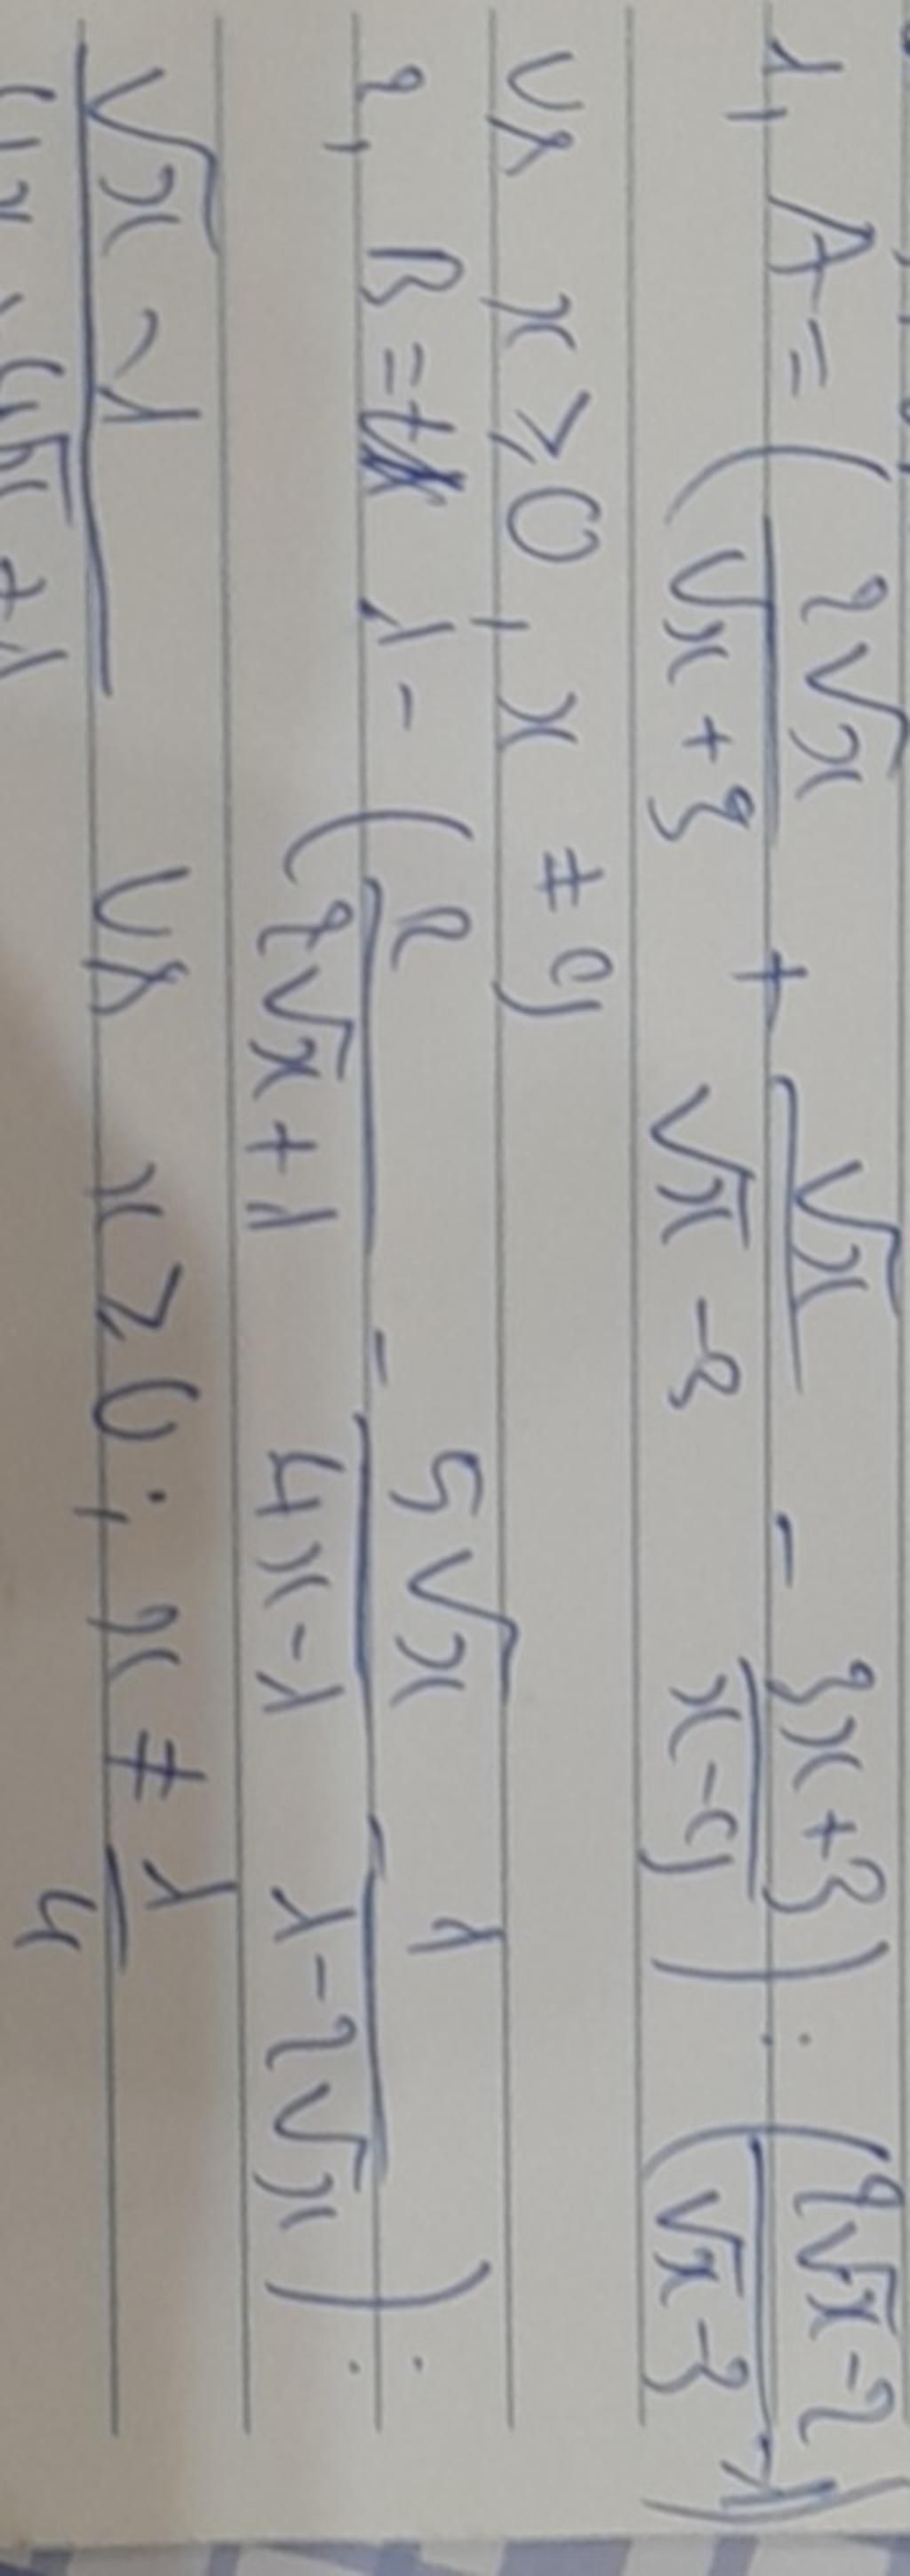 1, A = ( 2√x / (√x + 3) + √x / (√x - 3) - (3x + 3) / (x - 9) ) : ( (2√x - 2) / (√x - 3) - 1 )
Vs x ≥ 0, x ≠ 9
2, B = 1 - ( 2 / (2√x + 1) - 5√x / (4x - 1) - 1 / (1 - 2√x) ) :
(√x - 1) / (4x + 4√x + 1) Vs x ≥ 0; x ≠ 1/4